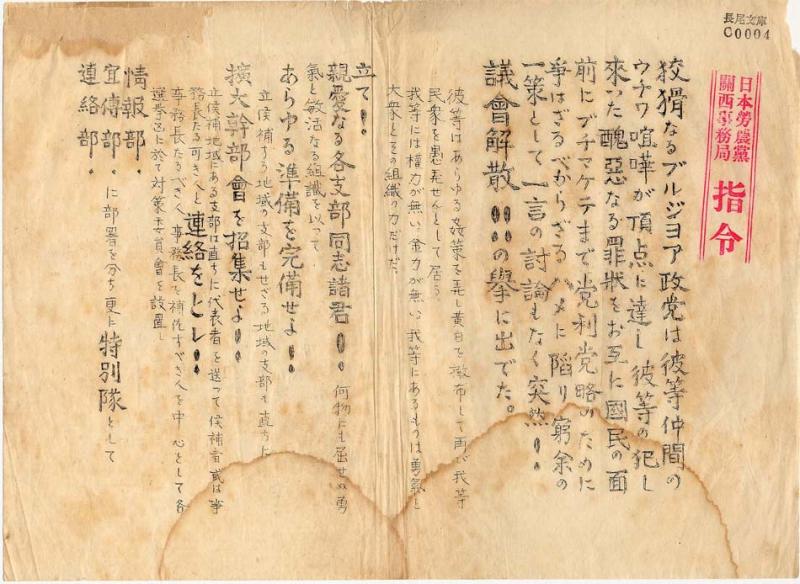 長尾文庫
C0004
日本勞農黨
關西事務局
指令
狡猾なるブルジョア政党は彼等仲間の
ウチワ喧嘩が頂点に達し彼等の犯し
來いた醜惡なる罪狀をお互に國民の面
前にブチマケテまで党利党略のために
爭はざるべからざるハメに陷り窮余の
一策として一言の討論もなく突然!!
議會解散!!!の擧に出でた。
彼等はあらゆる姦策を弄し黄白を撒布して再び我等
民衆を愚弄せんとして居る
我等には權力が無い金力が無い我等にあるものは勇氣と
大衆とその組織の力だけだ。
立て!!
親愛なる各支部同志諸君!!何物にも屈せぬ勇
氣と敏活なる組識を以って
あらゆる準備を完備せよ!!
立候補する地域の支部もせざる地域の支部も直ちに
擴大幹部會を招集せよ!!
立候補地域にある支部は直ちに代表者を送って候補者或は事
務長たる可き人と連絡をとし!!
事務長たるべき人事務長を補佐すべき人を中心として各
選挙區に於て対策委員會を設置し
情報部・
宣傳部・に部署を分ち更に特別隊として
連絡部・